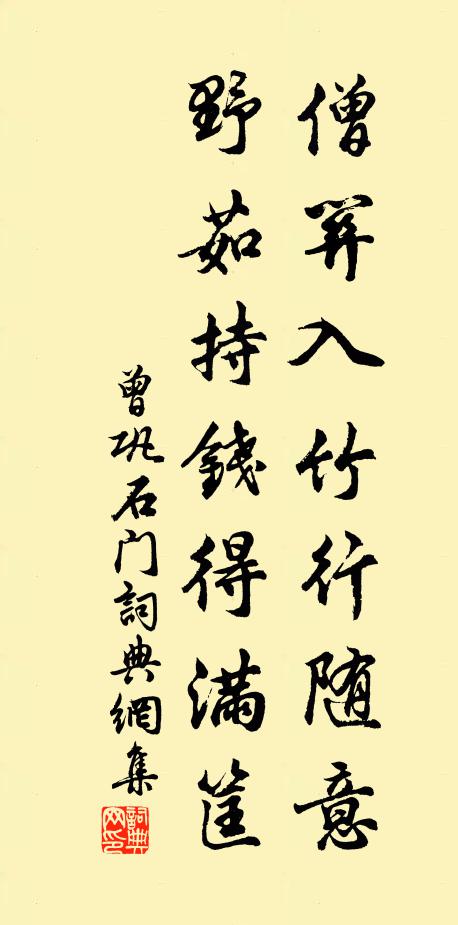 僧入竹行随意
野茹持錢得满筐
曾巩石门詞典網集
詞典网印